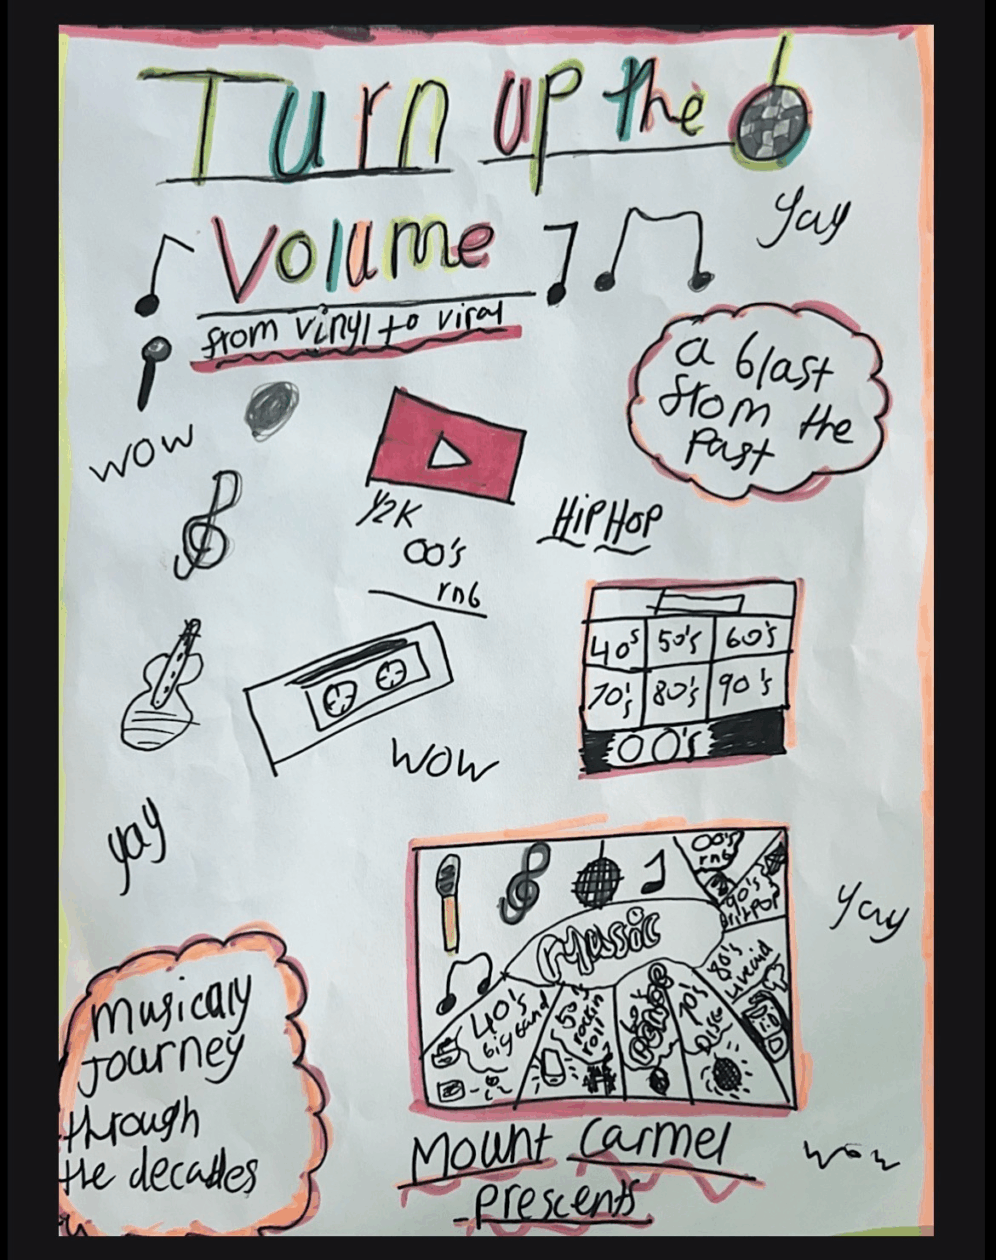 Turn up the
Volume
from vinyl to viral
Yay
a blast
from
the
Past
wow
Y2K
00's
rnb
HIPHOP
40s 50's 60's
70's 80's 90's
00's
wow
yay
Yay
00's
rnb
90's
Britpop
80's
Live aid
Music
40's
big band
50's
rockin
roll
60's
70's
Disco
musicaly
Journey
through
the decades
Mount Carmel
prescents
wow